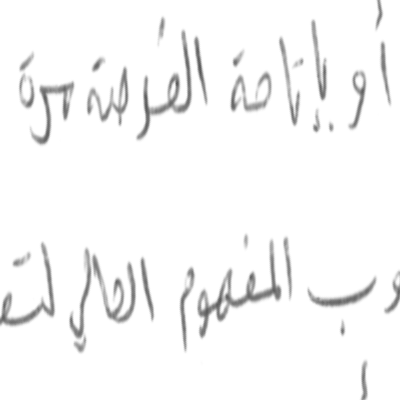 أو بإتاحة الفرصة مرة
وب المفهوم الحالي لتع